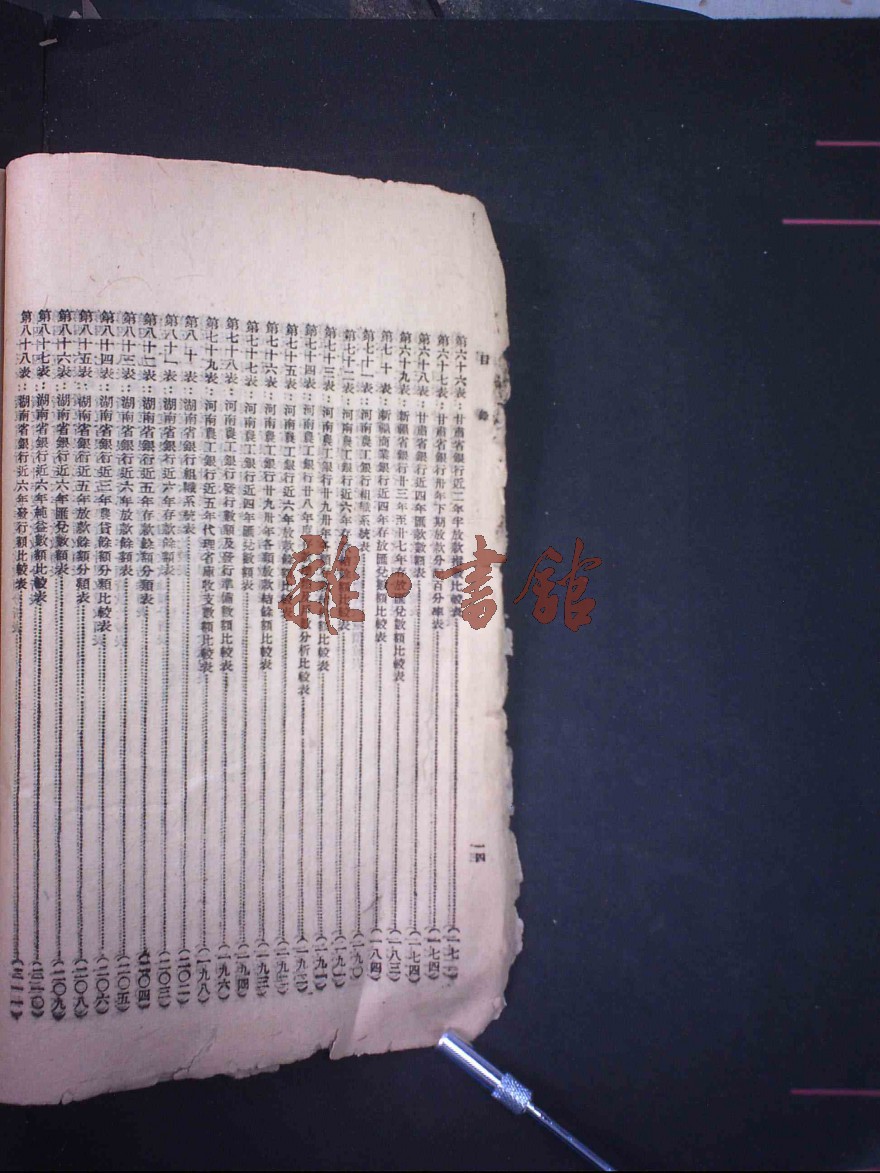 目錄
一四
第六十六表：甘肅省銀行近二年半放款
第六十七表：甘肅省銀行卅年下期放款分 百分率表
第六十八表：甘肅省銀行近四年匯款數額表……（一七四）
第六十九表：新疆省銀行廿三年至廿七年存放匯兌數額比較表……（一八三）
第七十表：新疆商業銀行近四年存放匯兌 額比較表……（一八四）
第七十一表：河南農工銀行組織系統表……（一九〇）
第七十二表：河南農工銀行近六年存
第七十三表：河南農工銀行廿九卅年各
第七十四表：河南農工銀行廿八年 分析比較表
第七十五表：河南農工銀行近六年放款餘額比較表
第七十六表：河南農工銀行廿九卅年各類放款結餘額比較表
第七十七表：河南農工銀行近四年匯兌數額表……（一九四）
第七十八表：河南農工銀行發行數額及發行準備數額比較表……（一九六）
第七十九表：河南農工銀行近五年代理省庫收支數額比較表……（一九八）
第八十表：湖南省銀行組織系統表
第八十一表：湖南省銀行近六年存款餘額表
第八十二表：湖南省銀行近五年存款餘額分類表……（二〇四）
第八十三表：湖南省銀行近六年放款餘額表……（二〇五）
第八十四表：湖南省銀行近三年農貸餘額分類比較表……（二〇六）
第八十五表：湖南省銀行近五年放款餘額分類表……（二〇八）
第八十六表：湖南省銀行近六年匯兌數額表……（二〇九）
第八十七表：湖南省銀行近六年純益數額比較表……（二一〇）
第八十八表：湖南省銀行近六年發行額比較表
雜·書館